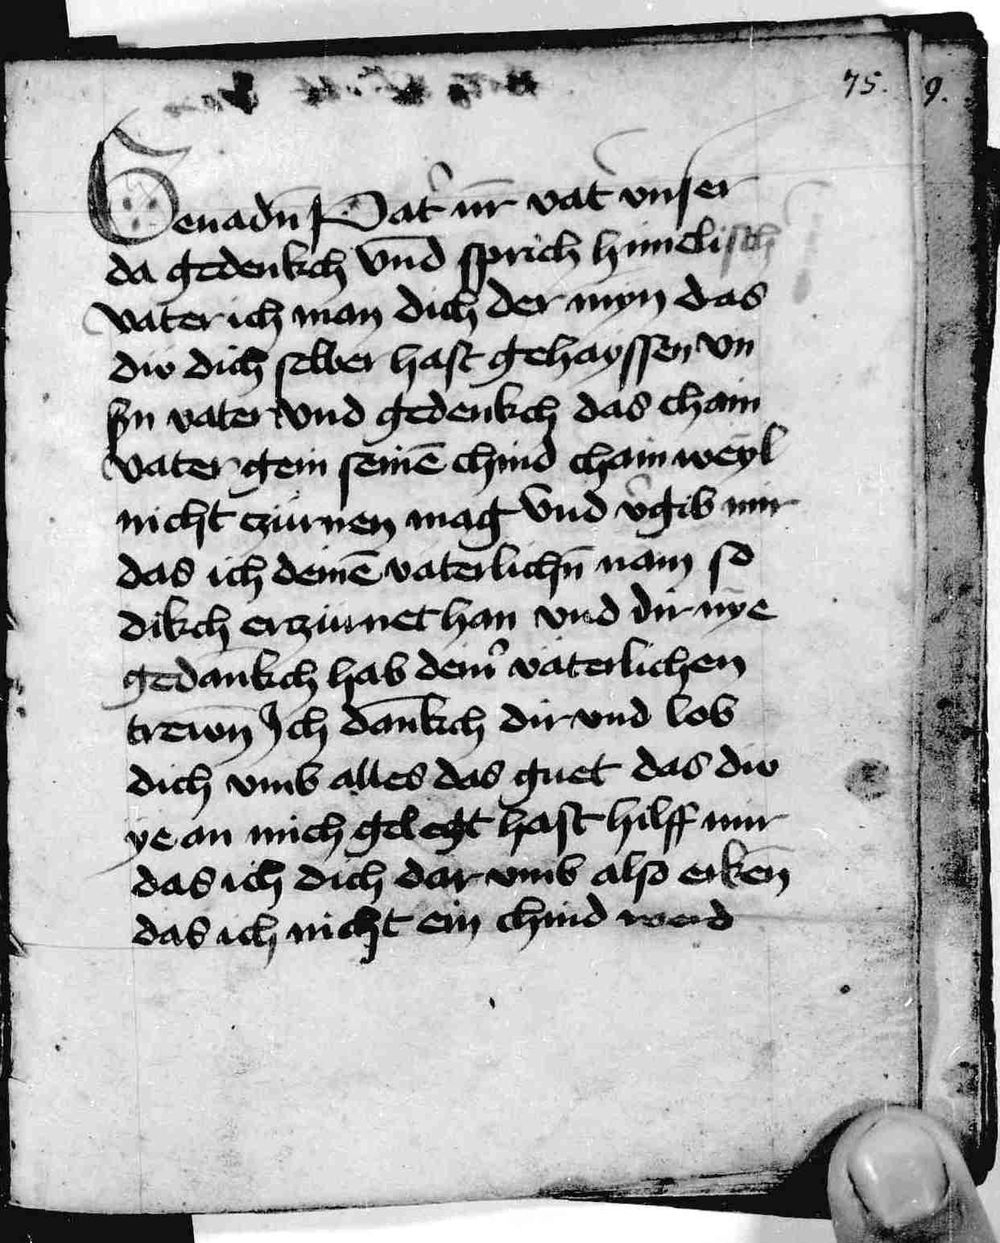 75. 9.
Genadn̄ Pat̄ nr̄ vat̄ vnser
da gedenkch vnd sprich himelisch
vater ich man dich der myn das
div dich selber hast gehayssen vn
sin vater vnd gedenkch das chain
vater gein seinē chind chain weyl
nicht czürnen mag vnd v̄gib mir
das ich deinē vaterlichn̄ nam so
dikch erczürnet han vnd dir nye
gedankch hab dein̄ vaterlichen
trewn Ich dankch dir vnd lob
dich vmb alles das guet das div
ye an mich gelegt hast hilff mir
das ich dich dar vmb also erkēn
das ich nicht ein chind werd